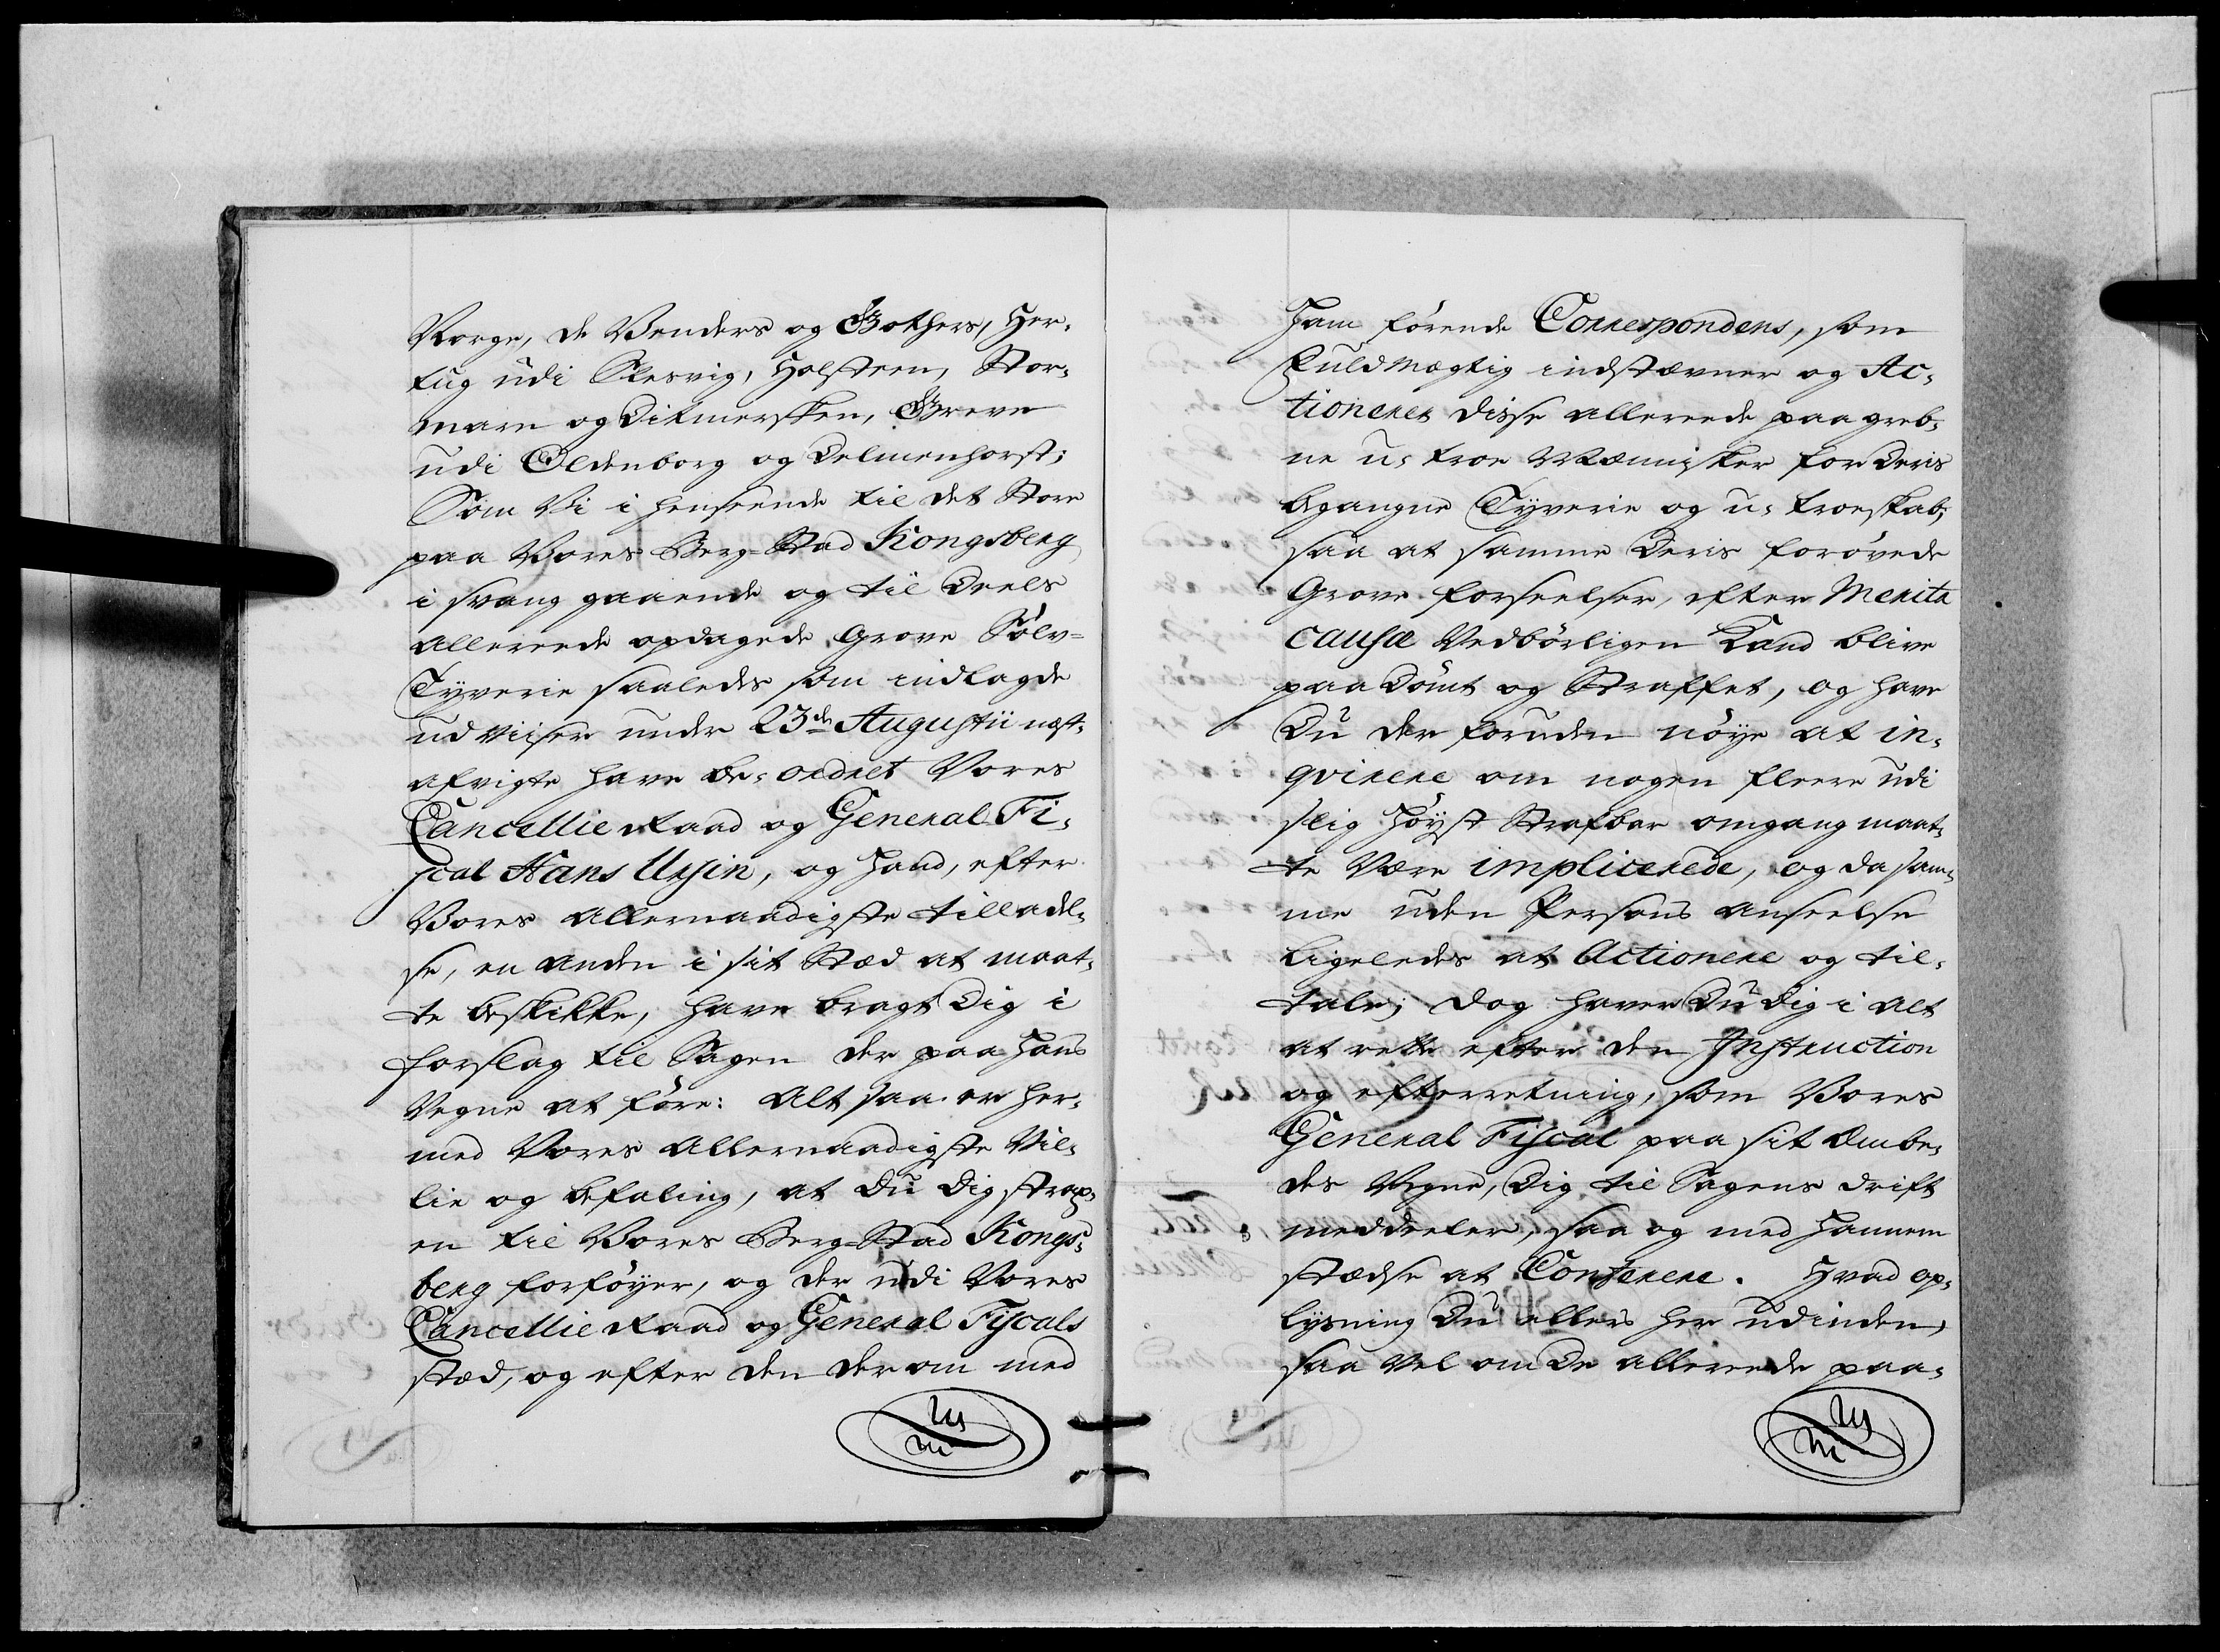 Norge, de Venders og Gothers, Her-
tug udi Slesvig, Holsteen, Stor-
marn og Ditmersken, Greve
udi Oldenborg og Delmenhorst;
Som Vi i henseende til det store
paa Vores Berg-Stad Kongsberg
i svang gaaende og til Deels
allereede opdagede grove Sölv-
Tyverie saaledes som indlagde
udviiser under 23de Augustii næst-
afvigte have be-ordret Vores
Cancellie Raad og General Fi-
scal Hans Ursin, og hand, efter
Vores allernaadigste tilladel-
se, en anden i sit Stæd at maat-
te beskikke, have bragt Dig i
forslag til Sagen der paa hans
Vegne at före: Alt saa er her-
med Vores allernaadigste Vil-
lie og befaling, at Du Dig strax-
en til Vores Berg-Stad Kongs-
berg forföyer, og der udi Vores
Cancellie Raad og General Fiscals
stæd, og efter den der om med
Ham förende Correspondens, som
Fuldmægtig indstævner og Ac-
tionerer disse allereede paa greb-
ne u-troe Mennisker for Deris
begangne Tyverie og u-troeskab,
saa at samme Deris forövede
Grove forseelser, efter Merita
causæ Vedbörligen Kand blive
paa Dömt og Straffet, og have
Du der foruden nöye at in-
qvirere om nogen fleere udi
slig Höyst Strafbar omgang maat-
te være implicerede, og da sam-
me uden Persons anseelse
ligeledes at Actionere og til-
tale; dog haver Du dig i alt
at rette efter den Instruction
og efterretning, som Vores
General Fiscal paa sit Embe-
des Vegne, Dig til Sagens drift
meddeler, saa og med hannem
stædse at Conferere. Hvad op-
lysning Du ellers her udinden,
saa vel om De allereede paa-